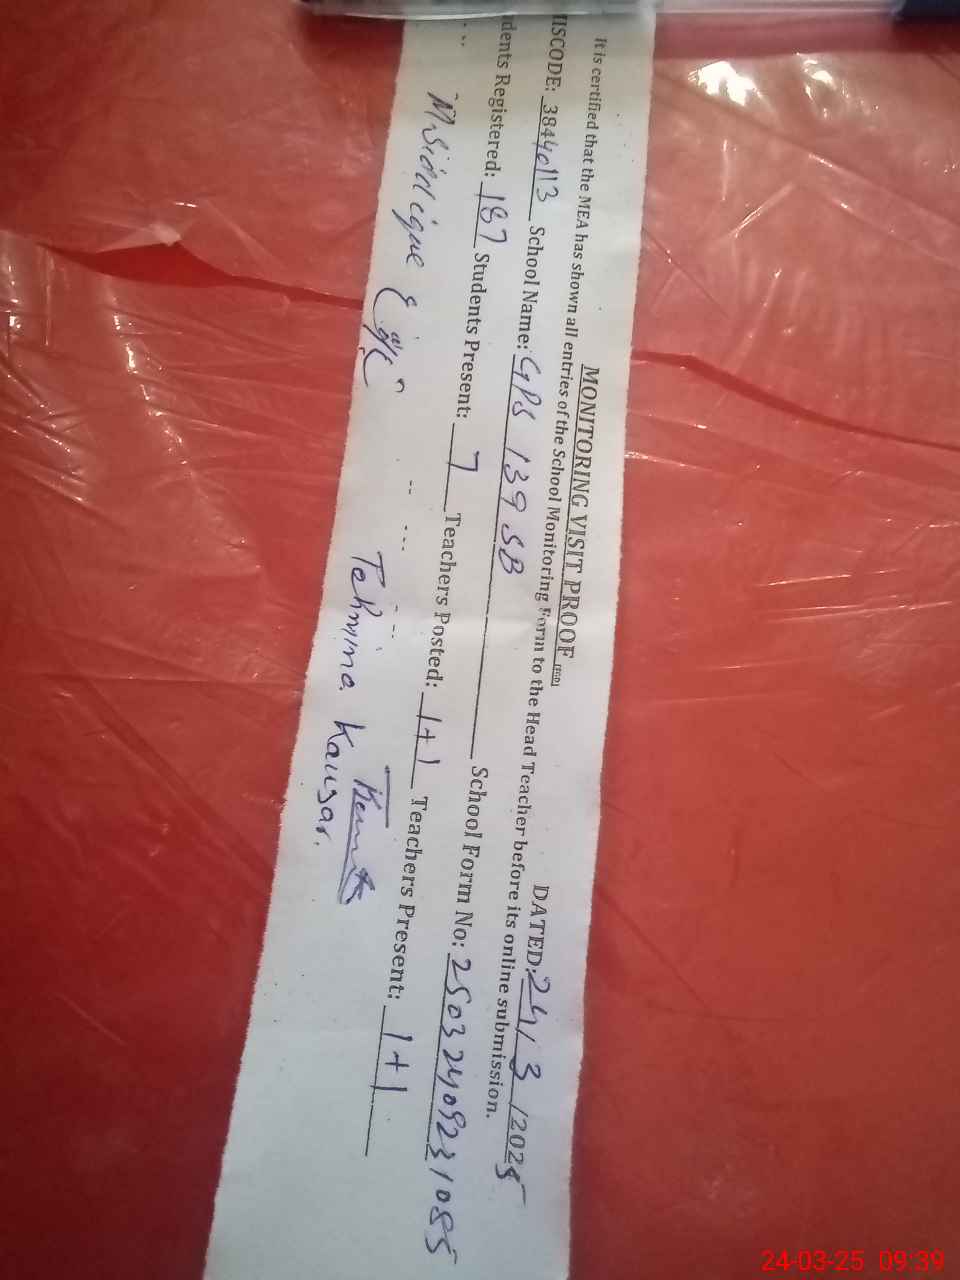 MONITORING VISIT PROOF (PSD) DATED: 24/3/2025
It is certified that the MEA has shown all entries of the School Monitoring Form to the Head Teacher before its online submission.
MISCODE: 38440113 School Name: GPS 139 SB School Form No: 25032409231085
dents Registered: 187 Students Present: 7 Teachers Posted: 1+1 Teachers Present: 1+1
M. Siddique
Tehmina Kausar.
24-03-25 09:39